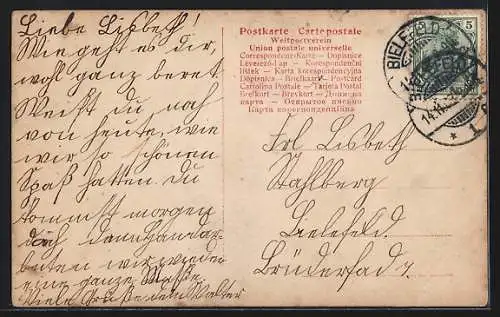 Liebe Lisbeth!
Wie geht es dir,
wohl ganz bereit.
Weißt du noch
von heute, wie
wir so schönen
Spaß hatten. Du
kommst morgen
doch dann
wir wieder
eine ganze Masse.
Viele Grüße dein Walter
Postkarte Cartepostale
Weltpostverein
Union postale universelle
Correspondenz-Karte — Dopisnice
Levelező-Lap — Korespondenční
lístek — Karta korespondencyjna
Dopisnica — Briefkaart — Postcard
Cartolina Postale — Tarjeta Postal
Brefkort — Brevkort — Дописна
карта — Открытое письмо
Карта корреспонденціина
BIELEFELD
5
14.
* 1
Frl Lisbeth
Stahlberg
Bielefeld.
Brüderpfad 7.